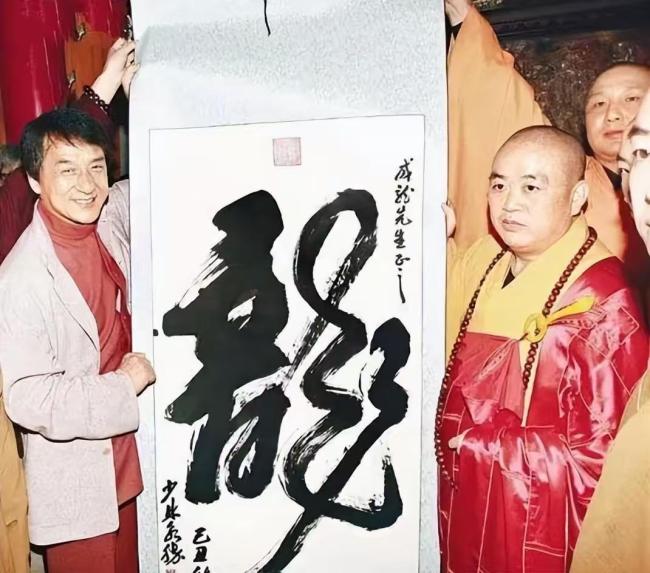 成龍先生正之
龍
己丑
少林永